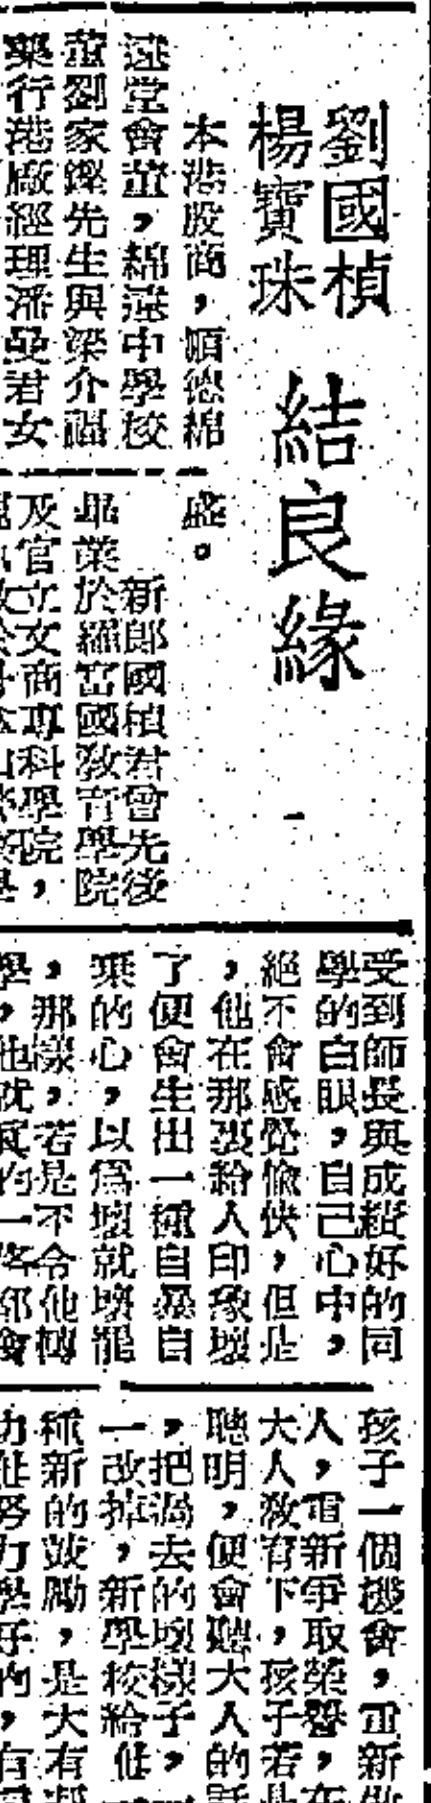 劉國楨
楊寶珠
結良緣
本港股商,順德綿
遠堂會董,綿遠中學校
董劉家鏗先生與梁介福
藥行港廠經理潘曼君女
盛。
新郎國楨君曾先後
畢業於羅富國敎育學院
及官立文商專科學院,
受到師長與成績好的同
學的白眼,自己心中,
絕不會感覺愉快,但是
,他在那裏給人印象壞
了便會生出一種自暴自
棄的心,以爲壞就壞罷
,那樣,若是不令他轉
學,他就眞的一路都會
孩子一個機會,重新做
人,重新爭取榮譽,在
大人敎育下,孩子若是
聰明,便會聽大人的話
,把過去的壞樣子,一
一改掉,新學校給他一
種新的鼓勵,是大有
力他努力學好的,有